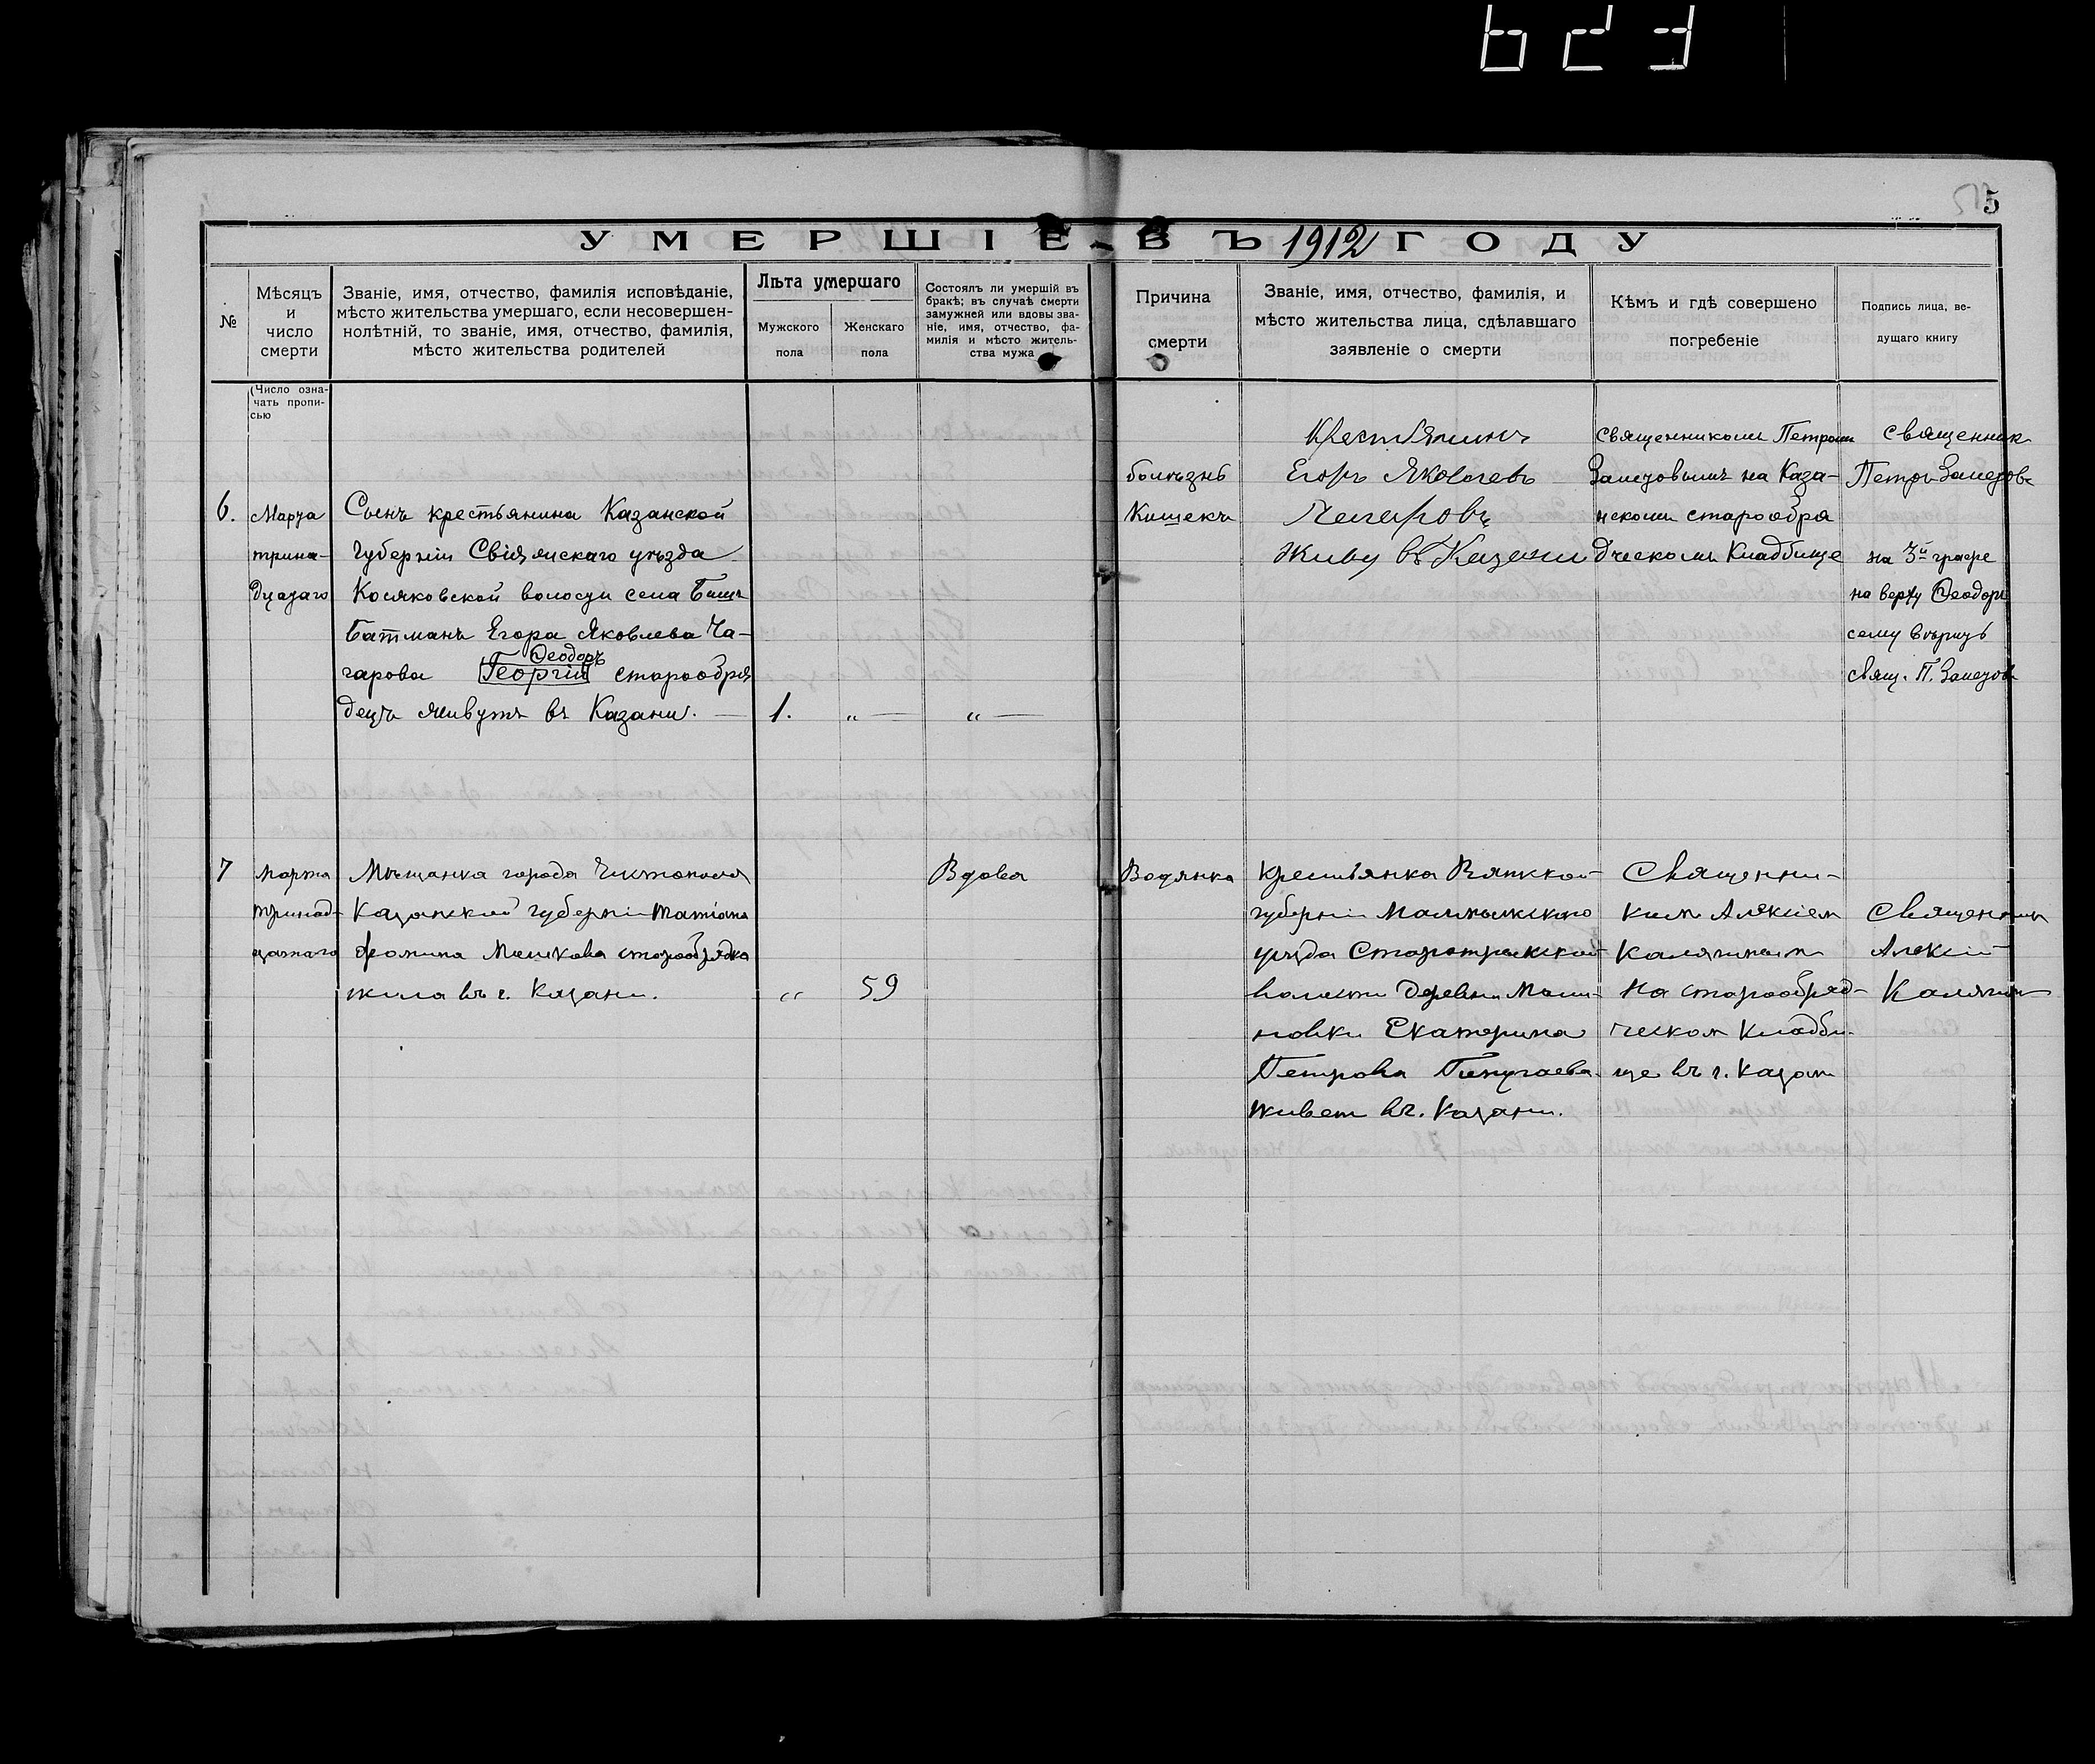 623
5
УМЕРШІЕ ВЪ 1912 ГОДУ
№
Мѣсяцъ
и
число
смерти
Званіе, имя, отчество, фамилія исповѣданіе,
мѣсто жительства умершаго, если несовершен-
нолѣтній, то званіе, имя, отчество, фамилія,
мѣсто жительства родителей
Лѣта умершаго
Мужского
пола
Женскаго
пола
Состоялъ ли умершій въ
бракѣ; въ случаѣ смерти
замужней или вдовы зва-
ніе, имя, отчество, фа-
милія и мѣсто житель-
ства мужа
Причина
смерти
Званіе, имя, отчество, фамилія, и
мѣсто жительства лица, сдѣлавшаго
заявленіе о смерти
Кѣмъ и гдѣ совершено
погребеніе
Подпись лица, ве-
дущаго книгу
(Число озна-
чать пропи-
сью
6.
Марта
трина-
дцатаго
Сынъ крестьянина Казанской
Губерніи Свіяжскаго уѣзда
Косяковской волости села Бишь
Батманъ Егора Яковлева Ча-
гарова Георгій Ѳеодоръ старообря
децъ живутъ въ Казани.
1.
"
"
болѣзнь
Кишекъ
Крестьянинъ
Егоръ Яковлевъ
Чагаровъ
Живу въ Казани
священникомъ Петромъ
на Каза-
нскомъ старообря
дческомъ Кладбище
Священник
Петръ
на 3й графе
на верху Ѳеодоръ
сему вѣрить
свящ. П.
7
марта
тринад-
цатаго
Мѣщанка города Чистополя
Казанской губерніи Татіана
Фомина Мешкова старообрядка
жила въ г. Казани.
"
59
Вдова
Водянка
Крестьянка Вятской
губерніи Малмыжскаго
уѣзда
волости деревни
Екатерина
Петрова
живет въ г. Казани.
Священни-
ком Алексіем
Калягиным
на старообряд-
ческом кладби-
ще въ г. Казани
Священникъ
Алексій
Калягин